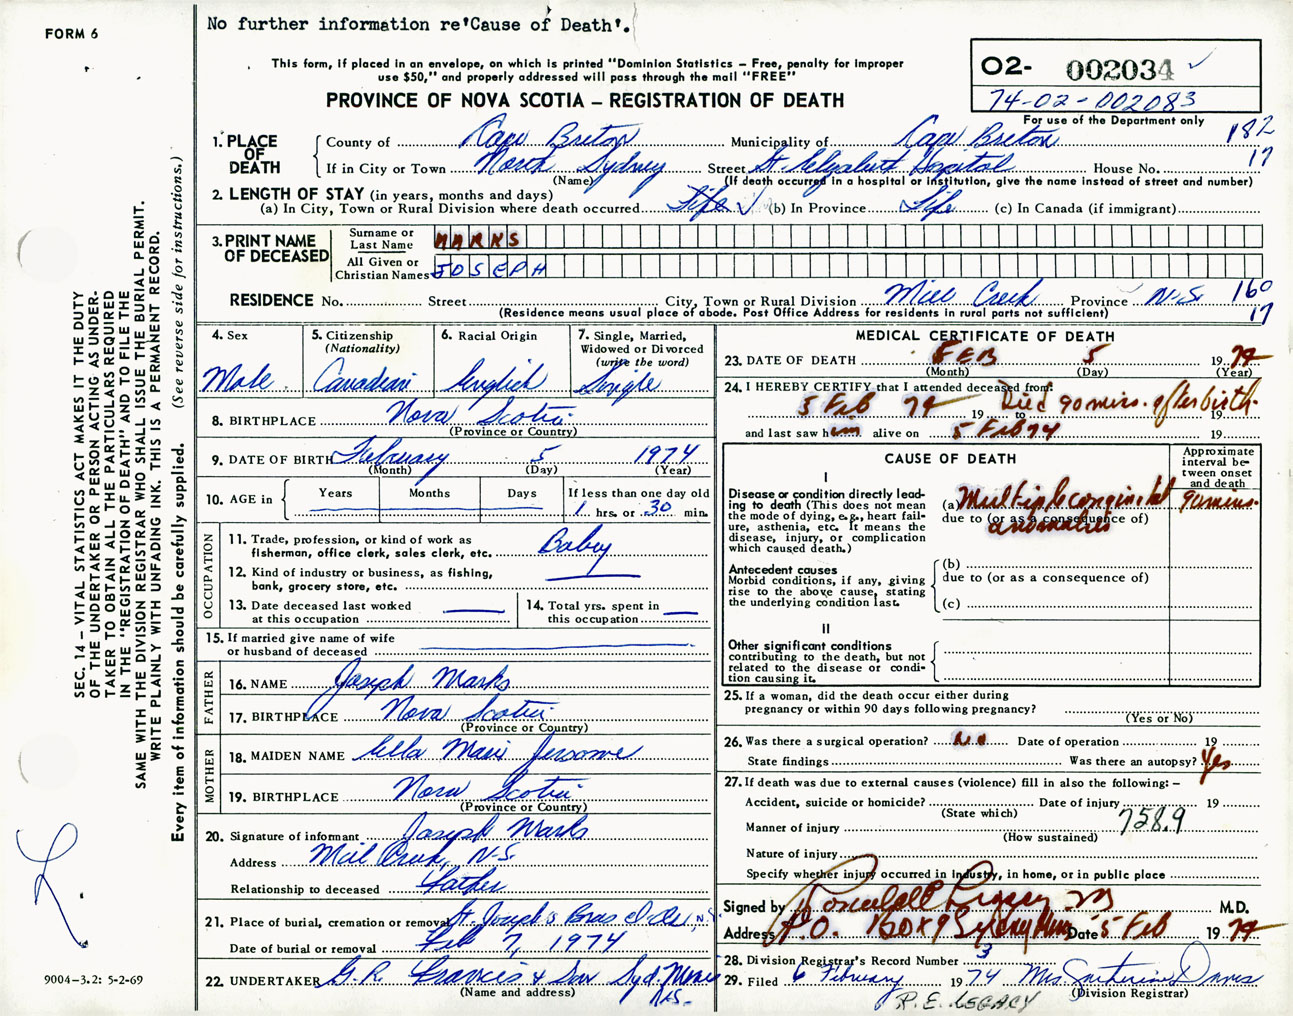 FORM 6
No further information re'Cause of Death'.
This form, if placed in an envelope, on which is printed "Dominion Statistics – Free, penalty for improper
use $50," and properly addressed will pass through the mail "FREE"
PROVINCE OF NOVA SCOTIA – REGISTRATION OF DEATH
O2- 002034
74-02-002083
For use of the Department only
182
17
1. PLACE OF DEATH
County of Cape Breton Municipality of Cape Breton
If in City or Town North Sydney Street St. Elizabeth Hospital House No.
(Name) (If death occurred in a hospital or institution, give the name instead of street and number)
2. LENGTH OF STAY (in years, months and days)
(a) In City, Town or Rural Division where death occurred Life (b) In Province Life (c) In Canada (if immigrant)
3. PRINT NAME OF DECEASED
Surname or Last Name MARKS
All Given or Christian Names JOSEPH
RESIDENCE No. Street City, Town or Rural Division Mill Creek Province N.S. 160
(Residence means usual place of abode. Post Office Address for residents in rural parts not sufficient) 17
4. Sex Male
5. Citizenship (Nationality) Canadian
6. Racial Origin English
7. Single, Married, Widowed or Divorced (write the word) Single
8. BIRTHPLACE Nova Scotia
(Province or Country)
9. DATE OF BIRTH February 5 1974
(Month) (Day) (Year)
10. AGE in Years Months Days If less than one day old
1 hrs. or 30 min.
OCCUPATION
11. Trade, profession, or kind of work as
fisherman, office clerk, sales clerk, etc. Baby
12. Kind of industry or business, as fishing,
bank, grocery store, etc.
13. Date deceased last worked
at this occupation
14. Total yrs. spent in
this occupation
15. If married give name of wife
or husband of deceased
FATHER
16. NAME Joseph Marks
17. BIRTHPLACE Nova Scotia
(Province or Country)
MOTHER
18. MAIDEN NAME Ella Marie Jerome
19. BIRTHPLACE Nova Scotia
(Province or Country)
20. Signature of informant Joseph Marks
Address Mill Creek, N.S.
Relationship to deceased Father
21. Place of burial, cremation or removal St. Joseph's Bras d'Or, N.S.
Date of burial or removal Feb 7, 1974
22. UNDERTAKER G.R. Francis & Son Syd. Mines
(Name and address) N.S.
MEDICAL CERTIFICATE OF DEATH
23. DATE OF DEATH FEB 5 1974
(Month) (Day) (Year)
24. I HEREBY CERTIFY that I attended deceased from:
5 Feb 74 19 to Died 90 mins. after birth. 19
and last saw him alive on 5 Feb 74 19
CAUSE OF DEATH
Approximate interval between onset and death
I
Disease or condition directly lead-
ing to death (This does not mean
the mode of dying, e.g., heart fail-
ure, asthenia, etc. It means the
disease, injury, or complication
which caused death.)
(a) Multiple congenital anomalies 90 mins.
due to (or as a consequence of)
Antecedent causes
Morbid conditions, if any, giving
rise to the above cause, stating
the underlying condition last.
(b)
due to (or as a consequence of)
(c)
II
Other significant conditions
contributing to the death, but not
related to the disease or condi-
tion causing it.
25. If a woman, did the death occur either during
pregnancy or within 90 days following pregnancy?
(Yes or No)
26. Was there a surgical operation? No Date of operation 19
State findings Was there an autopsy? Yes
27. If death was due to external causes (violence) fill in also the following: –
Accident, suicide or homicide? Date of injury 19
(State which)
Manner of injury 758.9
(How sustained)
Nature of injury
Specify whether injury occurred in Industry, in home, or in public place
Signed by M.D.
Address P.O. Box 9 Sydney Mines Date 5 Feb 1974
28. Division Registrar's Record Number 3
29. Filed 6 February 1974 Mrs. Davis
(Division Registrar)
R.E. LEGACY
SEC. 14 – VITAL STATISTICS ACT MAKES IT THE DUTY
OF THE UNDERTAKER OR PERSON ACTING AS UNDER-
TAKER TO OBTAIN ALL THE PARTICULARS REQUIRED
IN THE "REGISTRATION OF DEATH" AND TO FILE THE
SAME WITH THE DIVISION REGISTRAR WHO SHALL ISSUE THE BURIAL PERMIT.
WRITE PLAINLY WITH UNFADING INK. THIS IS A PERMANENT RECORD.
Every item of information should be carefully supplied. (See reverse side for instructions.)
9004–3.2: 5-2-69